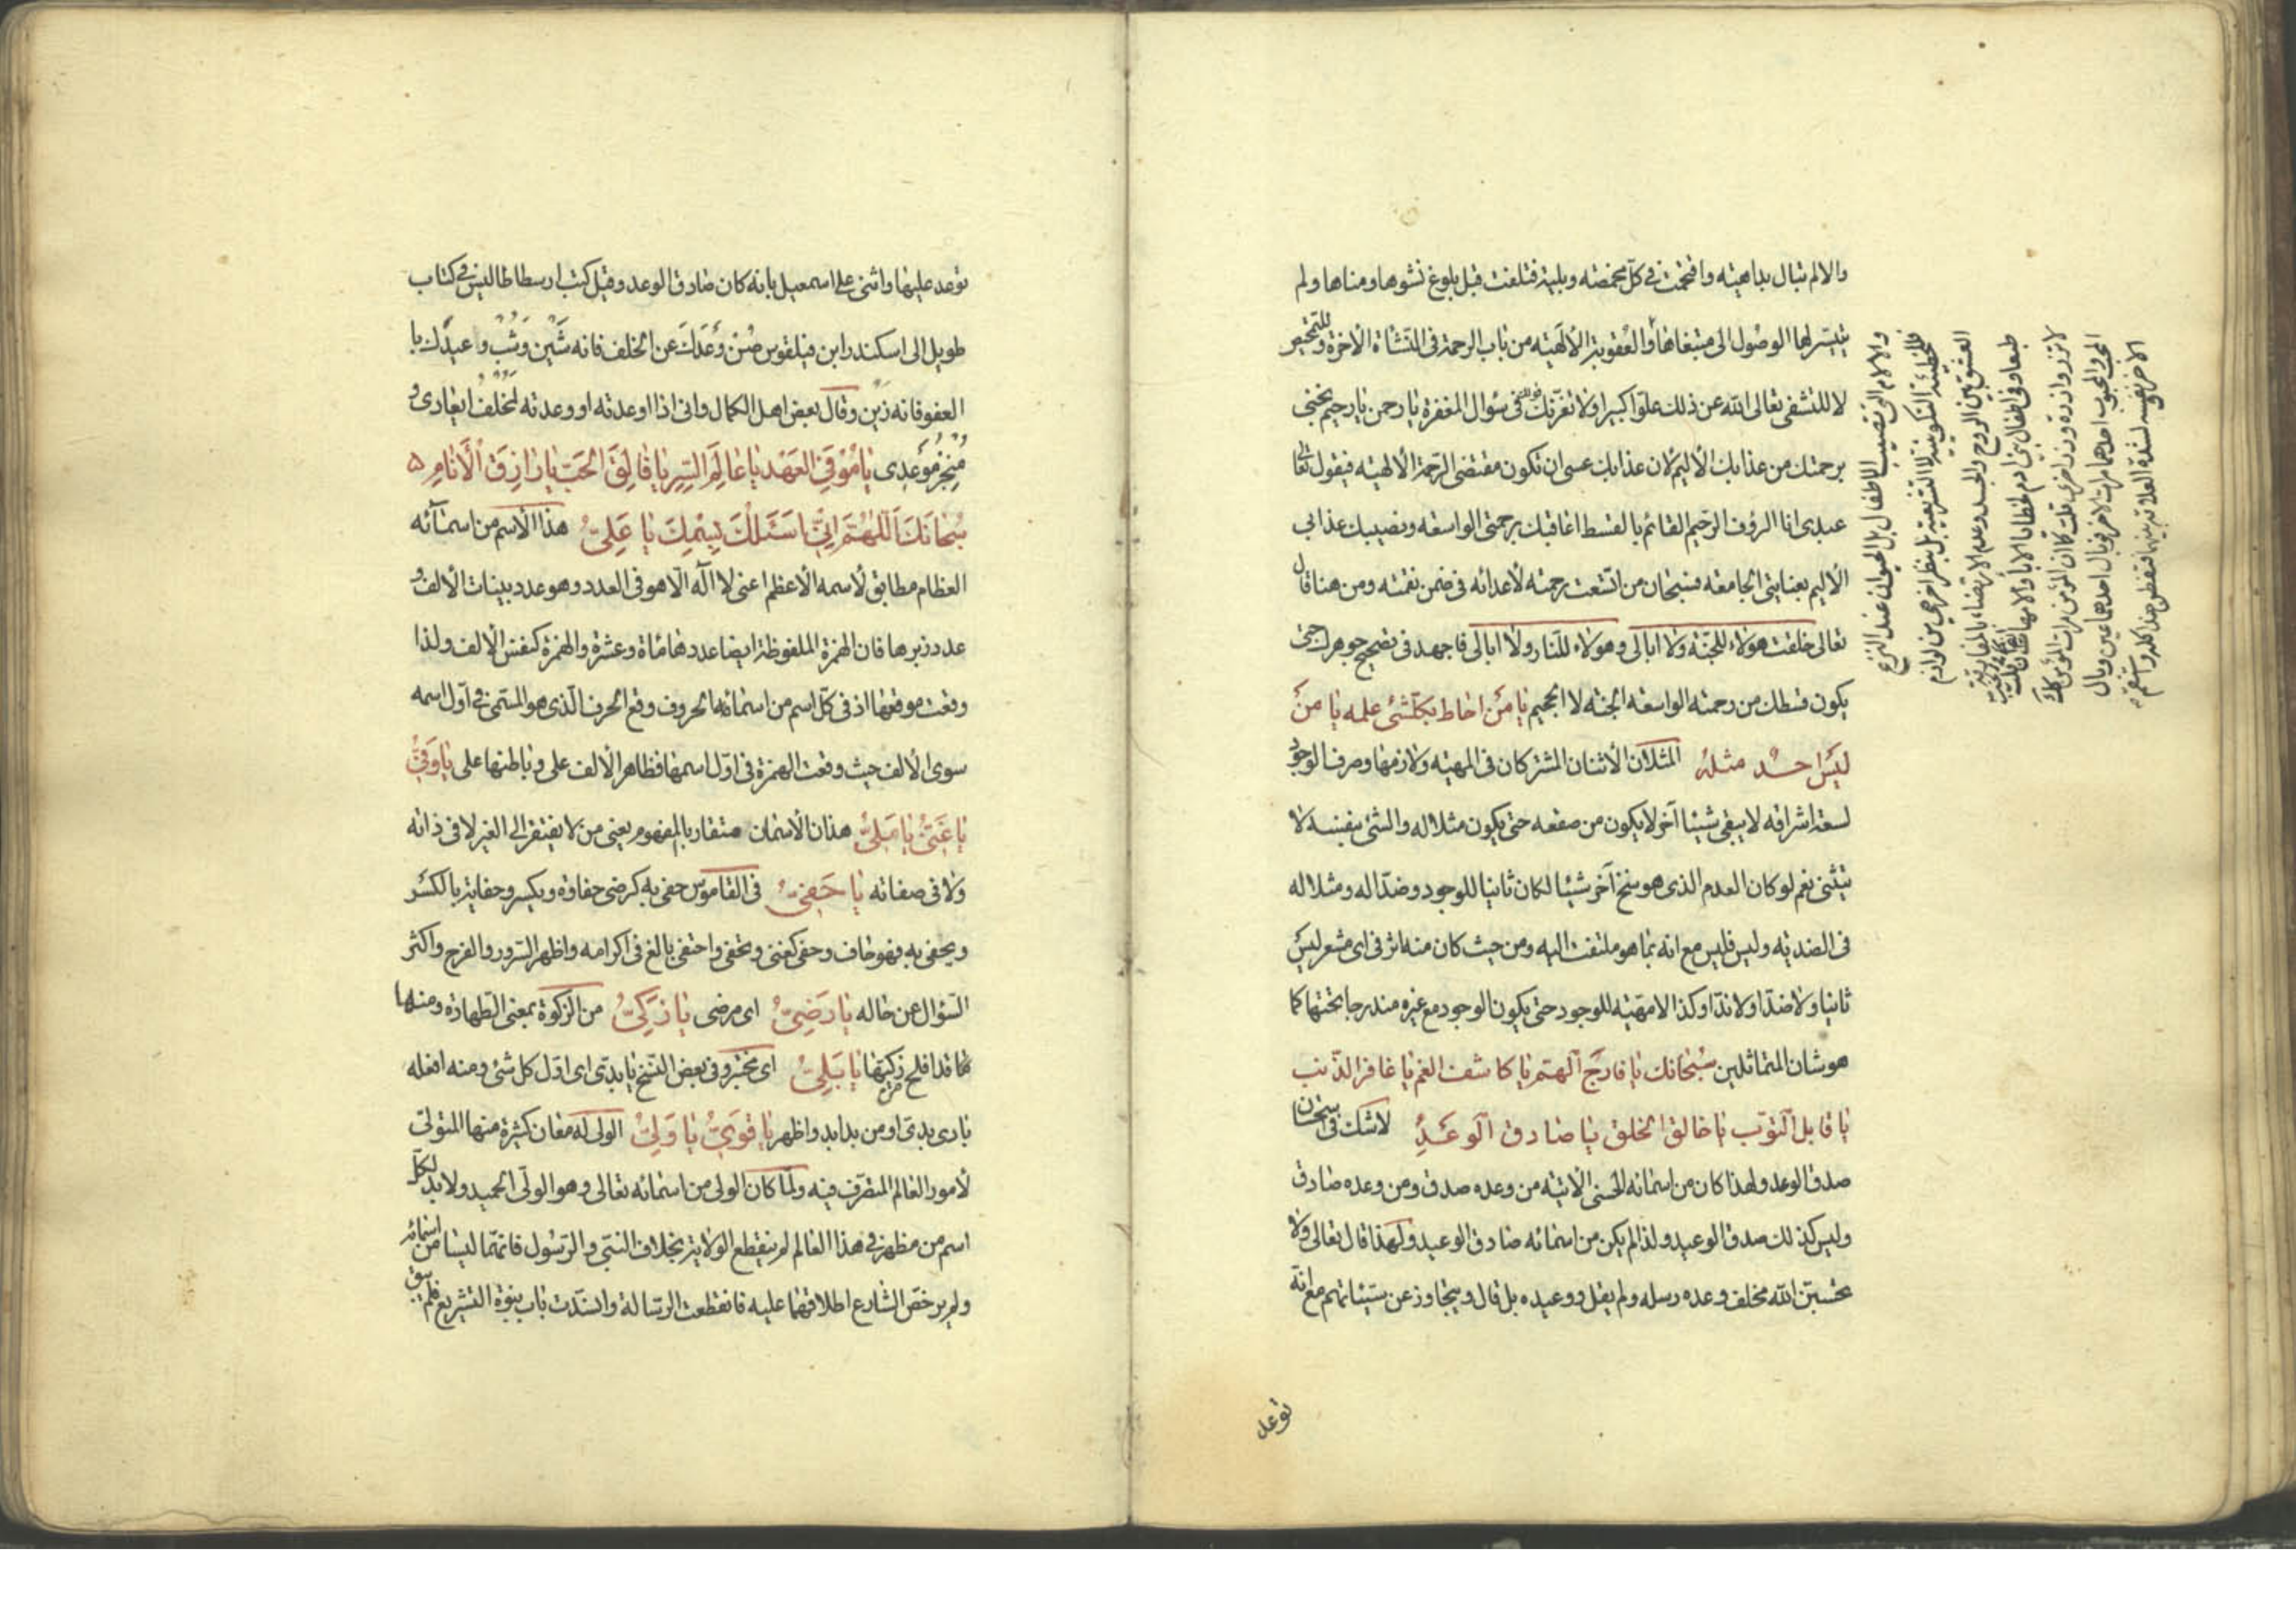 والا لم تبال بداهيته واقتحمت فى كل مخمصة وبلية فتلفت قبل بلوغ نشوها ومناها ولم
يتيسر لها الوصول الى مبتغاها والعقوبة الالهية من باب الرحمة فى النشأة الاخرة وللتخير
لا للتشفى تعالى الله عن ذلك علوا كبيرا ولا تغرنك قولك فى سؤال المغفرة يا رحمن يا رحيم نجنى
برحمتك من عذابك الأليم لان عذابك عسى ان تكون مقتضى الرحمة الالهية فيقول تعالى
عبدى انا الرؤف الرحيم القائم بالقسط اعاقبك برحمتى الواسعه ونصيبك عذابى
الأليم بعنايتى الجامعة فسبحان من اتسعت رحمته لأعدائه فى ضمن نقمته ومن هنا قال
تعالى خلقت هولاء للجنة ولا ابالى وهولاء للنار ولا ابالى فاجهد فى تصحيح جوهرك حتى
يكون قسطك من رحمته الواسعة الجنة لا الجحيم يا من احاط بكلشئ علمه يا من
ليس احد مثله المثلان الأثنان المشتركان فى المهية ولازمها وصرف الوجود
لسعة اشراقه لا يبقى شيئا آخر لا يكون من صقعه حتى يكون مثلا له والشئ بنفسه لا
يتثنى نعم لو كان العدم الذى هو سنخ آخر شيئا لكان ثانيا للوجود وضدا له ومثلا له
فى الضدية وليس فليس مع انه بما هو ملتفت اليه ومن حيث كان منه اثر فى اى مشعر ليس
ثانيا ولا ضدا ولا ندا وكذا لا مهية للوجود حتى يكون الوجود مع غيره مندرجا تحتها كما
هو شان المتماثلين سبحانك يا فارج الهم يا كاشف الغم يا غافر الذنب
يا قابل التوب يا خالق الخلق يا صادق الوعد لا شك فى سبحان
صدق الوعد ولهذا كان من اسمائه الحسنى الاتية من وعده صدق ومن وعده صادق
وليس كذلك صدق الوعيد ولذا لم يكن من اسمائه صادق الوعيد ولهذا قال تعالى ولا
تحسبن الله مخلف وعده رسله ولم يقل ووعيده بل قال ويتجاوز عن سيئاتهم مع انه
توعد
والالام التى تصيب الاطفال بل الحيوان عند النزع
فللخطيئة التكوينية لا التشريعية بل بنظر اخر هى من لوازم
العشق بين الروح والجسد وعدم الارتضاء بالمفارقة
طبعا وفى اطفال بنى ادم لخطايا الاباء والامهات
لا تزر وازرة وزر اخرى قلت كان المؤمن مرات المؤمن كذلك
المحب والمحبوب احدهما مرات الاخر فوبال احدهما عين وبال
الاخر بنفسه لشدة العلاقة بينهما فتفطن هذا كله واستقم
توعد عليها واثنى على اسمعيل بانه كان صادق الوعد وقيل كتب ارسطاطاليس فى كتاب
طويل الى اسكندر ابن فيلقوس صن وعدك عن الخلف فانه شين وشب واعيدك با
العفو فانه زين وقال بعض اهل الكمال وانى اذا اوعدته او وعدته لمخلف ايعادى و
منجز موعدى يا موفى العهد يا عالم السر يا فالق الحب يا رازق الأنام
سبحانك اللهم انى اسئلك باسمك يا على هذا الأسم من اسمائه
العظام مطابق لأسمه الأعظم اعنى لا اله الا هو فى العدد وهو عدد بينات الألف و
عدد زبرها فان الهمزة الملفوظة ايضا عددها مأة وعشرة والهمزة كنفس الألف ولذا
وقعت موقعها اذ فى كل اسم من اسمائها الحروف وقع الحرف الذى هو المسمى فى اول اسمه
سوى الألف حيث وقعت الهمزة فى اول اسمها فظاهر الألف على وباطنها على يا وفى
يا غنى يا ملى هذان الأسمان متقاربا المفهوم يعنى من لا يفتقر الى الغير لا فى ذاته
ولا فى صفاته يا حفى فى القاموس حفى به كرضى حفاوة ويكسر وحفاية بالكسر
ويحفى به فهو حاف وحفى كغنى وتحفى واحتفى بالغ فى اكرامه واظهر السرور والفرح واكثر
السؤال عن حاله يا رضى اى مرضى يا زكى من الزكوة بمعنى الطهارة ومنها
قد افلح من زكيها يا بدى اى مخبر وفى بعض النسخ يا بدى اى اول كل شئ ومنه افعله
بادى بدى او من بدا يبدو اظهر يا قوى يا ولى الولى له معان كثيرة منها المتولى
لأمور العالم المتصرف فيه ولما كان الولى من اسمائه تعالى وهو الولى الحميد ولا بد لكل
اسم من مظهر فى هذا العالم لم ينقطع الولاية بخلاف النبى والرسول فانهما ليسا من اسمائه
ولم يرخص الشارع اطلاقهما عليه فانقطعت الرسالة وانسدت باب نبوة التشريع فلم يبق